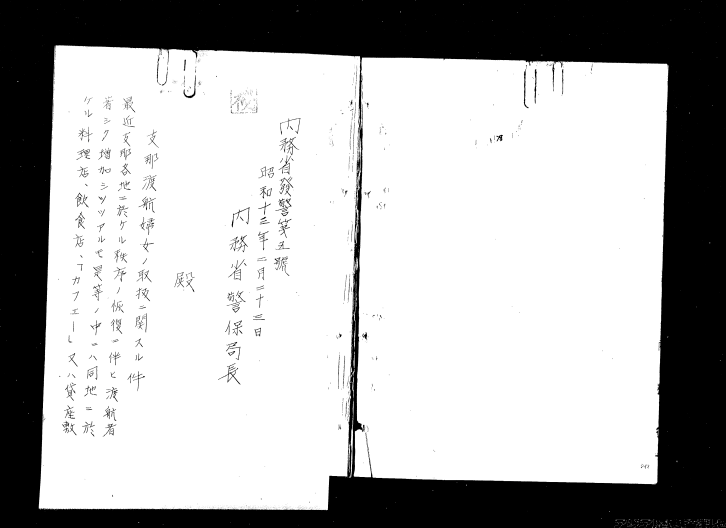 内務省發警第五號
昭和十三年二月二十三日
内務省警保局長
殿
支那渡航婦女ノ取扱ニ関スル件
最近支那各地ニ於ケル秩序ノ恢復ニ伴ヒ渡航者
著シク増加シツツアルモ是等ノ中ニハ同地ニ於
ケル料理店、飲食店、「カフェー」又ハ貸座敷